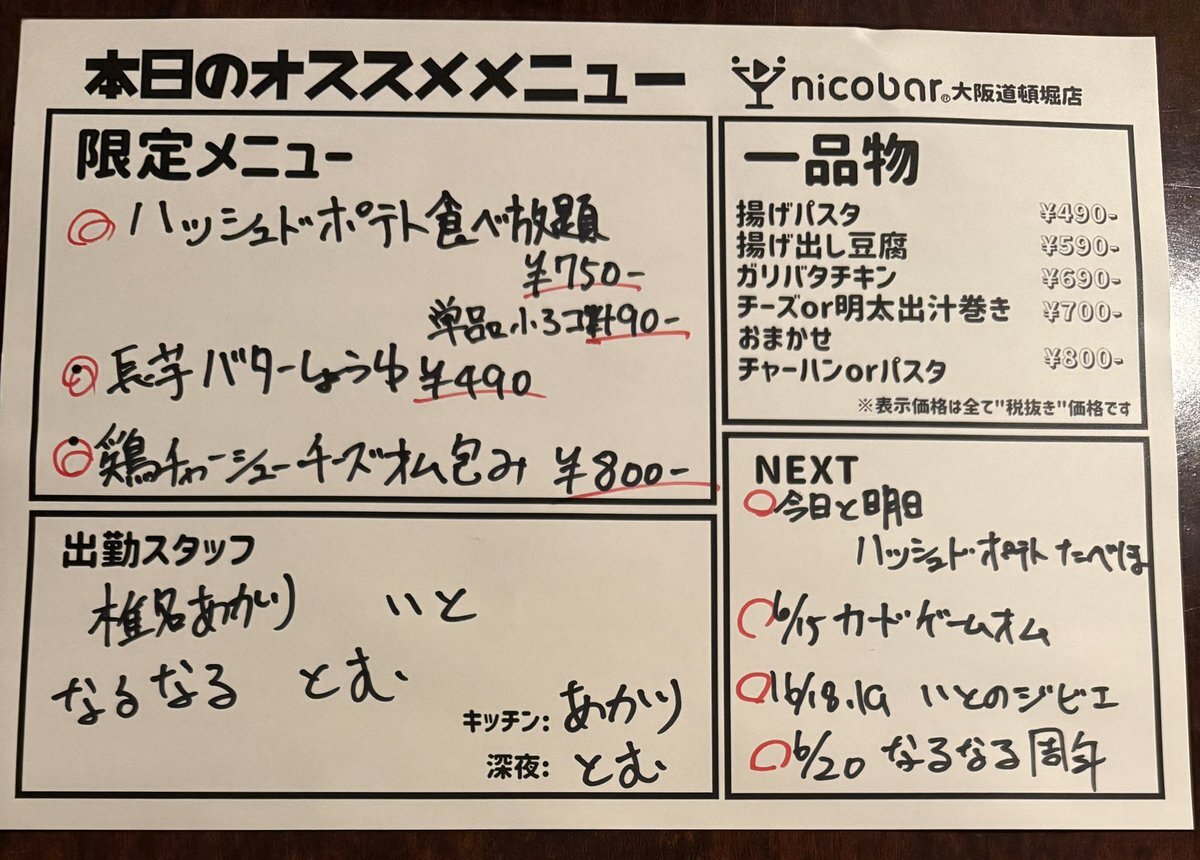 本日のオススメメニュー
nicobar®大阪道頓堀店
限定メニュー
ハッシュドポテト食べ放題
¥750-
単品小3コ ¥490-
長芋バターしょうゆ ¥490
鶏チャーシューチーズオム包み ¥800-
一品物
揚げパスタ ¥490-
揚げ出し豆腐 ¥590-
ガリバタチキン ¥690-
チーズor明太出汁巻き ¥700-
おまかせ
チャーハンorパスタ ¥800-
※表示価格は全て"税抜き"価格です
出勤スタッフ
椎名あかり いと
なるなる とむ
キッチン: あかり
深夜: とむ
NEXT
今日と明日
ハッシュドポテトたべほ
6/15 カードゲームオム
6/18.19 いとのジビエ
6/20 なるなる周年